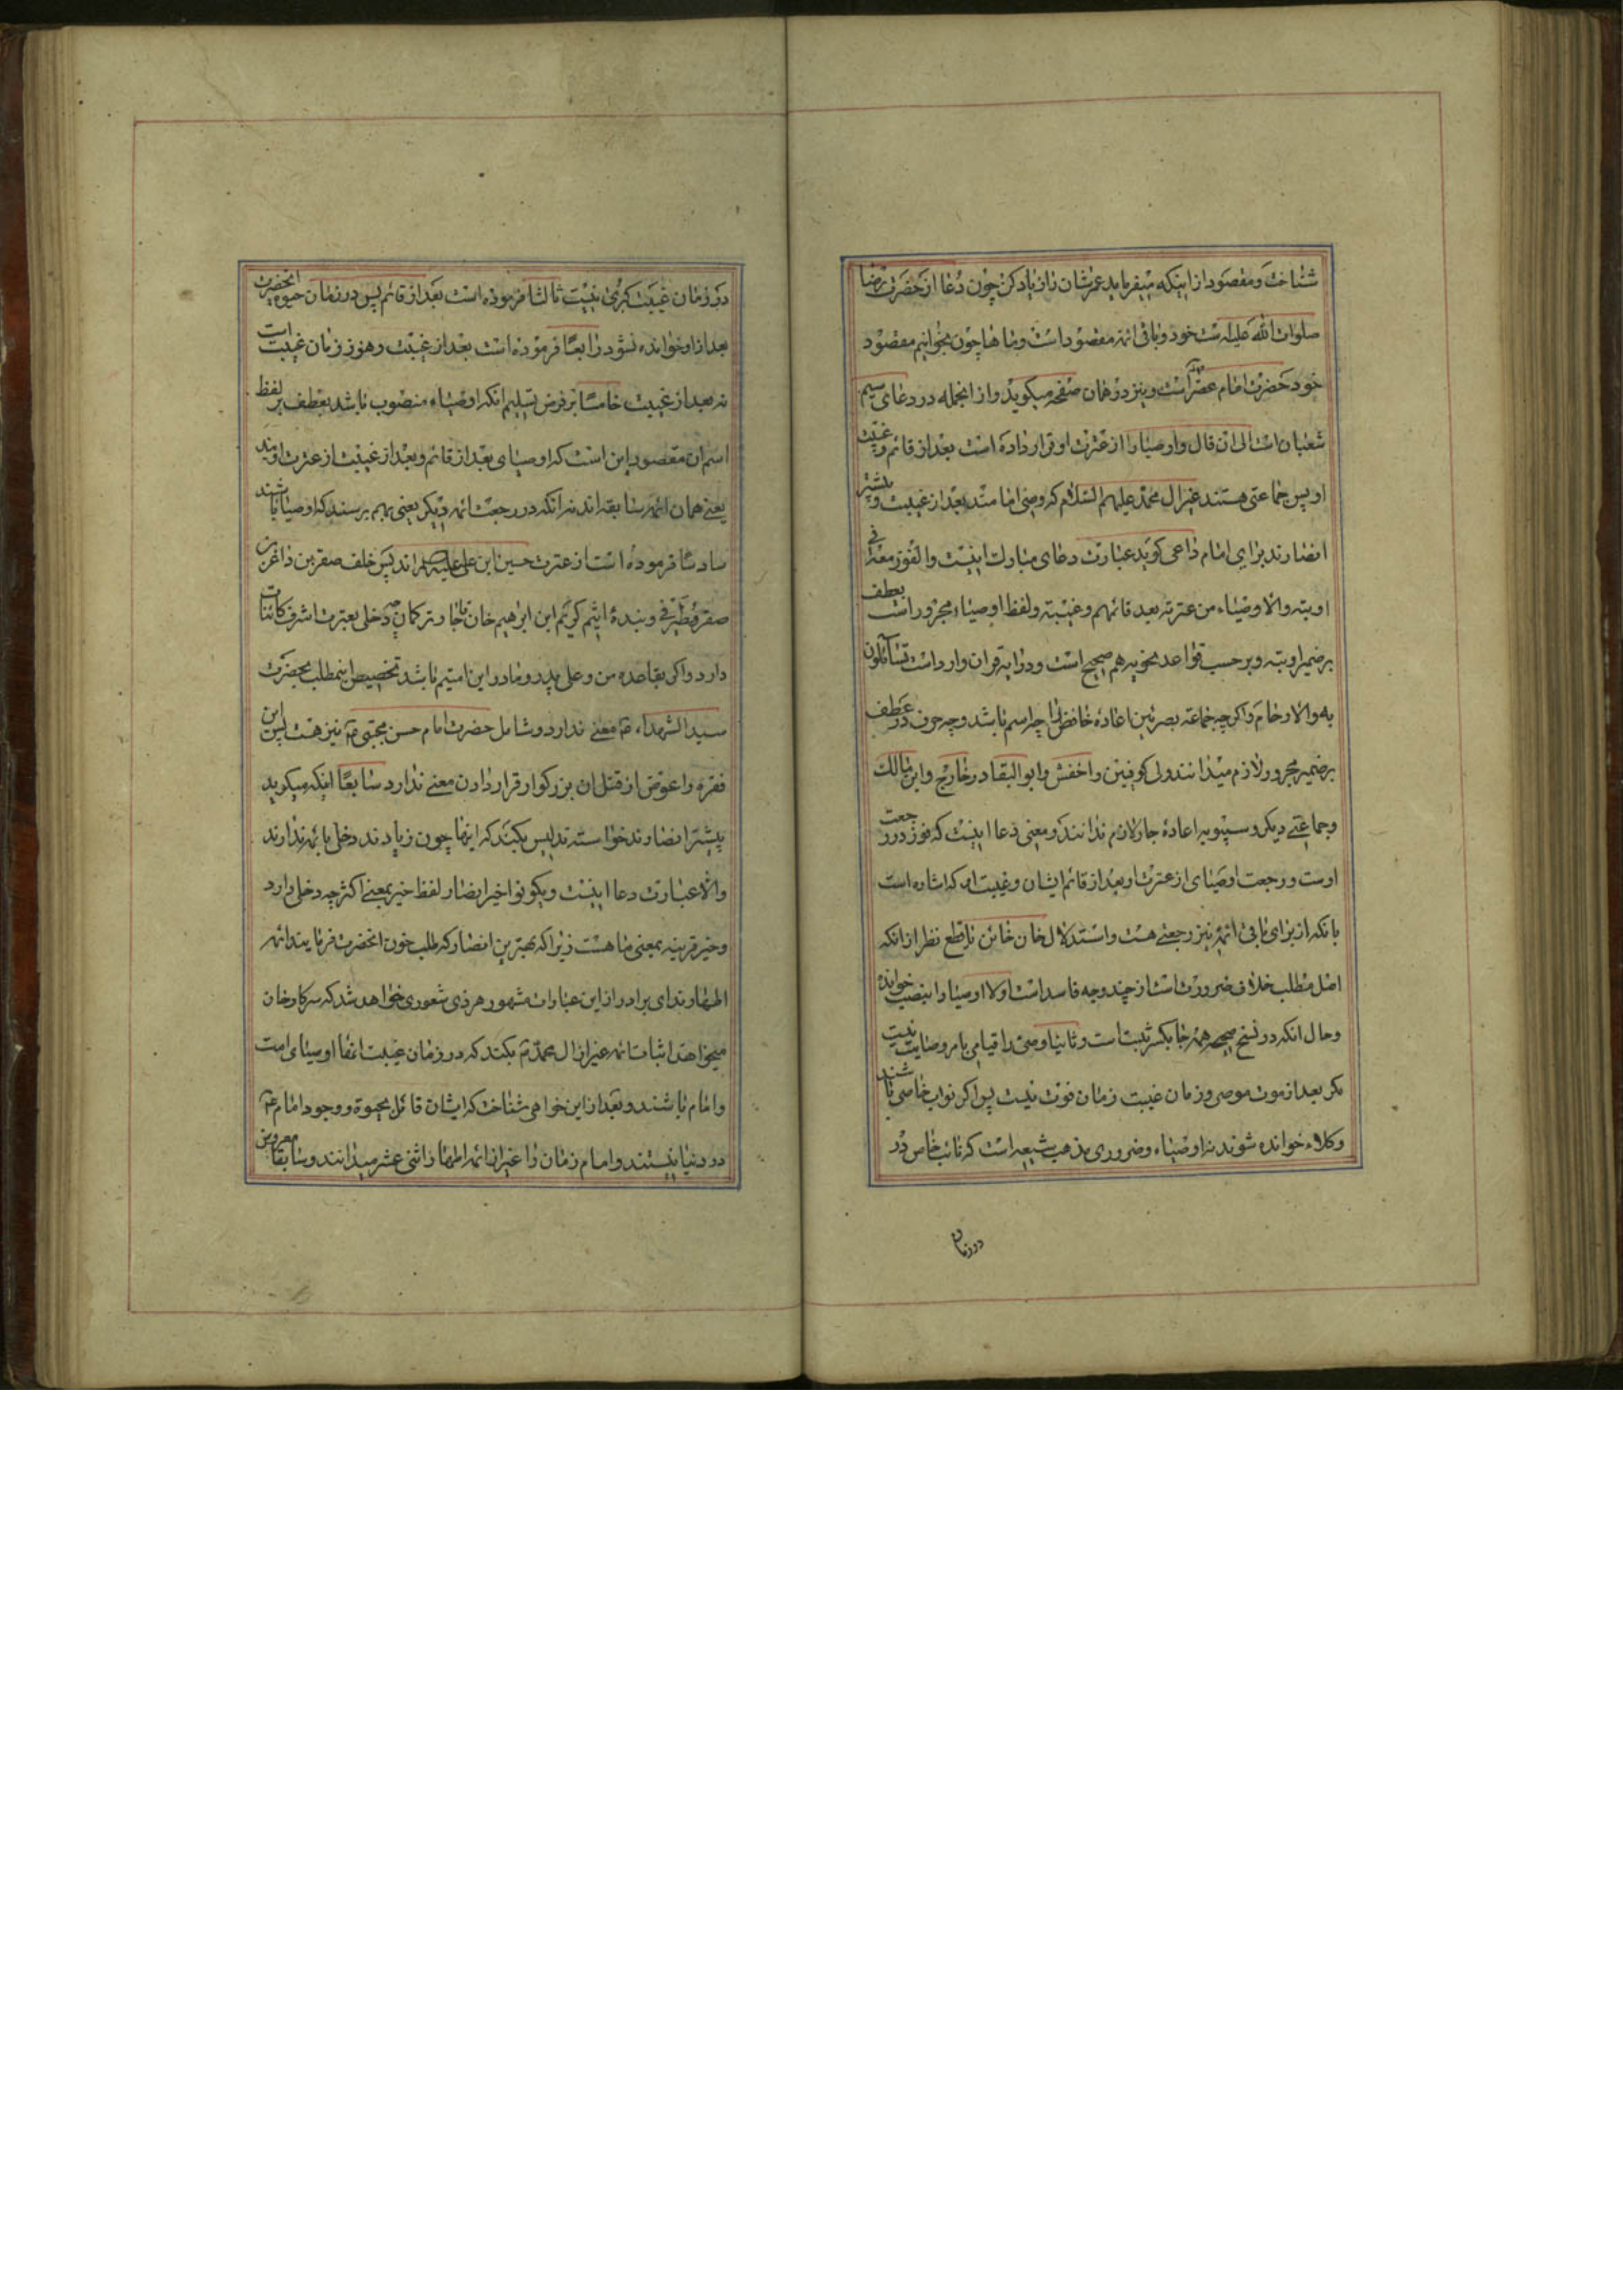 شناخت و مقصود از اینکه میفرماید عمرشان را زیاد کن چون دعا از حضرت رضا
صلوات الله علیه است خود و باقی ائمه مقصود است و ماها چون بخوانیم مقصود
خود حضرت امام عصر است و نیز در همان صفحه میکوید و از انجمله در دعای سیم
شعبان است الی ان قال و اوصیا را از عترت او قرار داده است بعد از قائم و غیبت
او پس جماعتی هستند غیر ال محمد علیهم السلام که وصی امامند بعد از غیبت و
انصارند برای امام داعی کوید عبارت دعای مبارک اینست والفوز معه فی
اوبته والاوصیاء من عترته بعد قائمهم وغیبته ولفظ اوصیاء مجرور است بعطف
بر ضمیر اوبته و بر حسب قواعد نحویه هم صحیح است و در ایه قران وارد است تسآئلون
به والارحام و اکر چه جماعة بصرئین اعادهٔ خافض را چه اسم باشد و چه حرف در عطف
بر ضمیر مجرور لازم میدانند ولی کوفیین و اخفش و ابوالبقا در خارج و ابن مالک
و جماعتی دیکر و سیبویه اعادهٔ جار لازم ندانند و معنی دعا اینست که فوز در رجعت
اوست و رجعت اوصیای از عترت او بعد از قائم ایشان و غیبت او که اشاره است
بانکه از برای باقی ائمه نیز رجعتی هست و استدلال خان خائن با قطع نظر از انکه
اصل مطلب خلاف ضرورت است از چند وجه فاسد است اولا اوصیا را بنصب خوانده
و حال انکه در نسخ صحیحه همه جا بکسر ثبت است و ثانیا وصی را قیامی بامر وصایت نیست
مکر بعد از موت موصی و زمان غیبت زمان فوت نیست پس اکر نواب خاصی باشند
وکلاء خوانده شوند نه اوصیاء و ضروری مذهب شیعه است که نائب خاص در
در زمان
در زمان غیبت کبری نیست ثالثا فرموده است بعد از قائم پس در زمان حیوة انحضرت
بعد از او خوانده نشود رابعا فرموده است بعد از غیبت و هنوز زمان غیبت است
نه بعد از غیبت خامسا بر فرض تسلیم انکه اوصیاء منصوب باشد بعطف بر لفظ
اسم ان مقصود این است که اوصیای بعد از قائم و بعد از غیبت از عترت اویند
یعنی همان ائمه سابقه اند نه انکه در رجعت ائمه دیکر یعنی بهم برسند که اوصیا باشند
سادسا فرموده است از عترت حسین ابن علی علیه اند پس خلف صقر بن
صقر و بندهٔ اثیم کریم ابن ابرهیم خان قاجار و ترکمان چه دخلی بعترت اشرف کائنات
دارد و اکر بقاعده من و علی پدر و مادر این امتیم باشد تخصیص اینمطلب بحضرت
سید الشهداء ع معنی ندارد و شامل حضرت امام حسن مجتبی ع نیز هست پس این
فقره را عوض از قتل ان بزرکوار قرار دادن معنی ندارد سابعا اینکه میکوید
پیشتر انصارند خواسته تدلیس بکند که اینها چون زیادند دخلی بائمه ندارند
والا عبارت دعا اینست ویکونوا خیر انصار لفظ خیر بمعنی اکثر چه دخلی دارد
و خیر قرینه بمعنی ما هست زیرا که بهترین انصار که طلب خون انحضرت فرمایند ائمه
اطهارند ای برادر از این عبارات مشهور هر ذی شعوری خواهد شد که سرکار خان
میخواهد اثبات ائمه غیر از ال محمد ع بکند که در زمان غیبت انها اوصیای امت
و امام باشند و بعد از این خواهی شناخت که ایشان قائل بحیوة و وجود امام ع
در دنیا نیستند و امام زمان را غیر از ائمه اطهار اثنی عشر میدانند و سابقا معروض